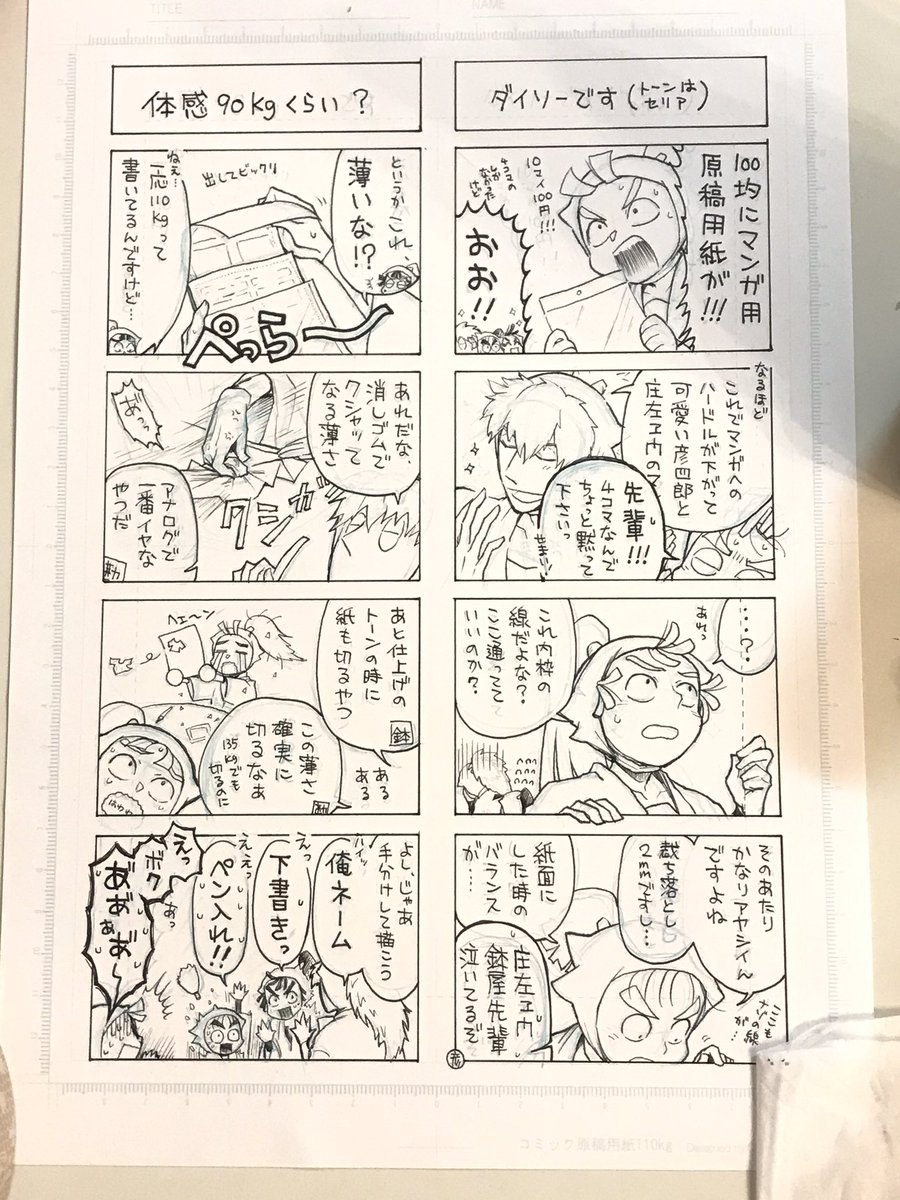 TITLE
NAME
ダイソーです(トーンは
セリア)
100均にマンガ用
原稿用紙が!!!
10マイ
100円!!!
4コマの
しか
なかった
けど
おお!!
なるほど
これでマンガへの
ハードルが下がって
可愛い彦四郎と
庄左ヱ門の
先輩!!!
4コマなんで
ちょっと黙って
下さいっ
せまい!
…?.
あれっ
これ内枠の
線だよな?
ここ通ってて
いいのか?
そのあたり
かなりアヤシイん
ですよね
裁ち落とし
2mmですし…
ここも
ナゾの線
が…
紙面に
した時の
バランス
が……
庄左ヱ門
鉢屋先輩
泣いてるぞ
体感90kgくらい?
というかこれ、
薄いな!?
出してビックリ
ねえ…
一応110kgって
書いてるんですけど…
ぺっら〜
あれだな、
消しゴムで
クシャッて
なる薄さ
あ゛っ
クシャ
アナログで
一番イヤな
やつだ
勘
あと仕上げの
トーンの時に
紙も切るやつ
鉢
ある
ある
この薄さ
確実に
切るなぁ
135kgでも
切るのに
勘
ヘェーン
はわわ
よし、じゃあ
手分けして描こう
ハイッ
俺ネーム
えっ
下書きっ
ええっ
ペン入れ!!
えっ
ボク
あ゛あ゛ぁあ゛〜
あっ
コミック原稿用紙110kg